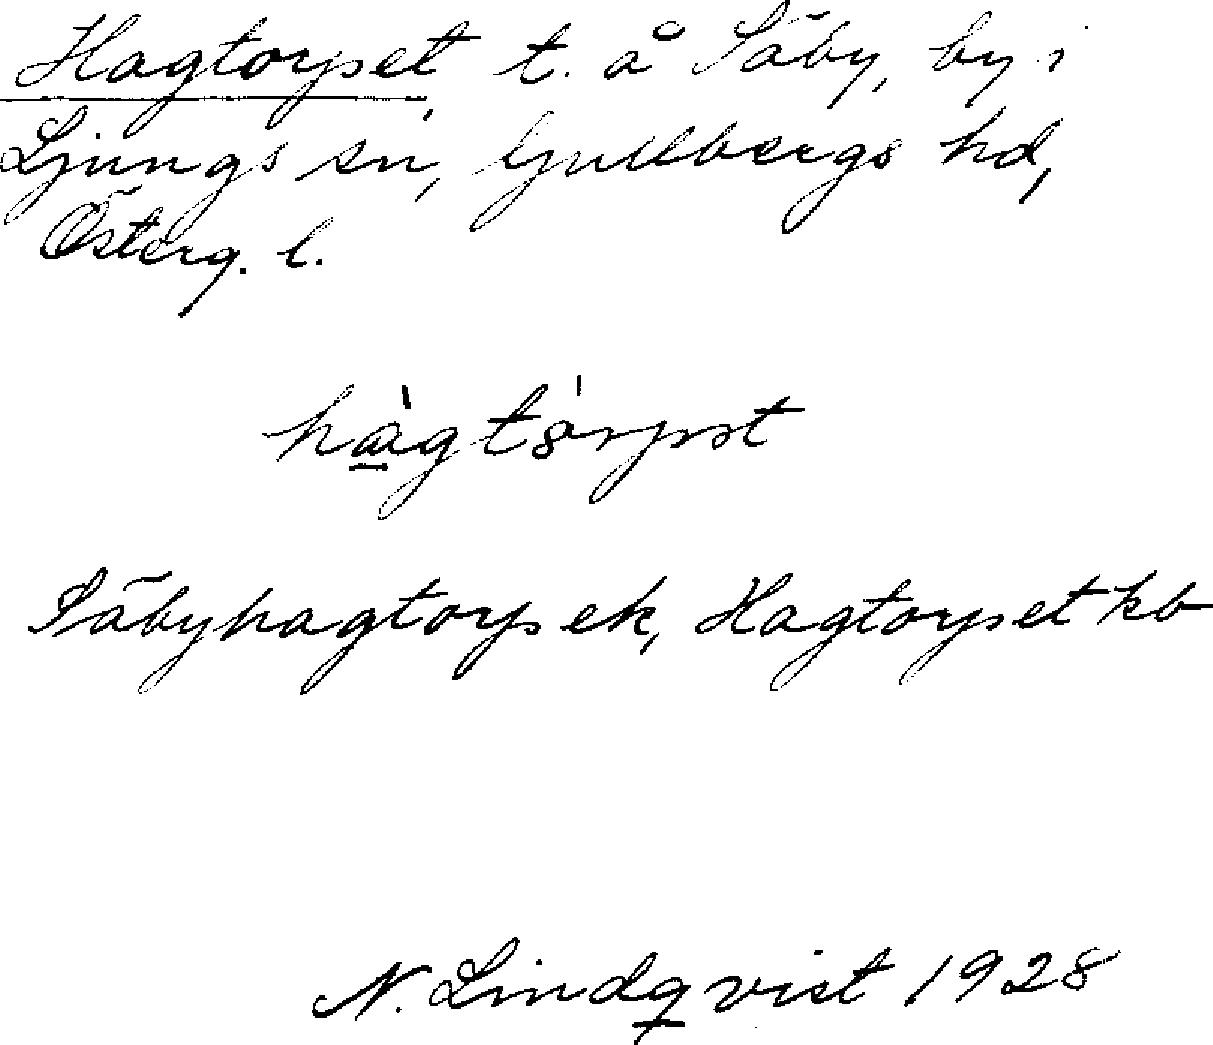 Hagtorpset t. å Säby, by i
Ljungs sn, Gullbergs hd,
Österg. l.
hàgtórpst
Säbyhagtorps ek, Hagtorpset kb
N. Lindqvist 1928